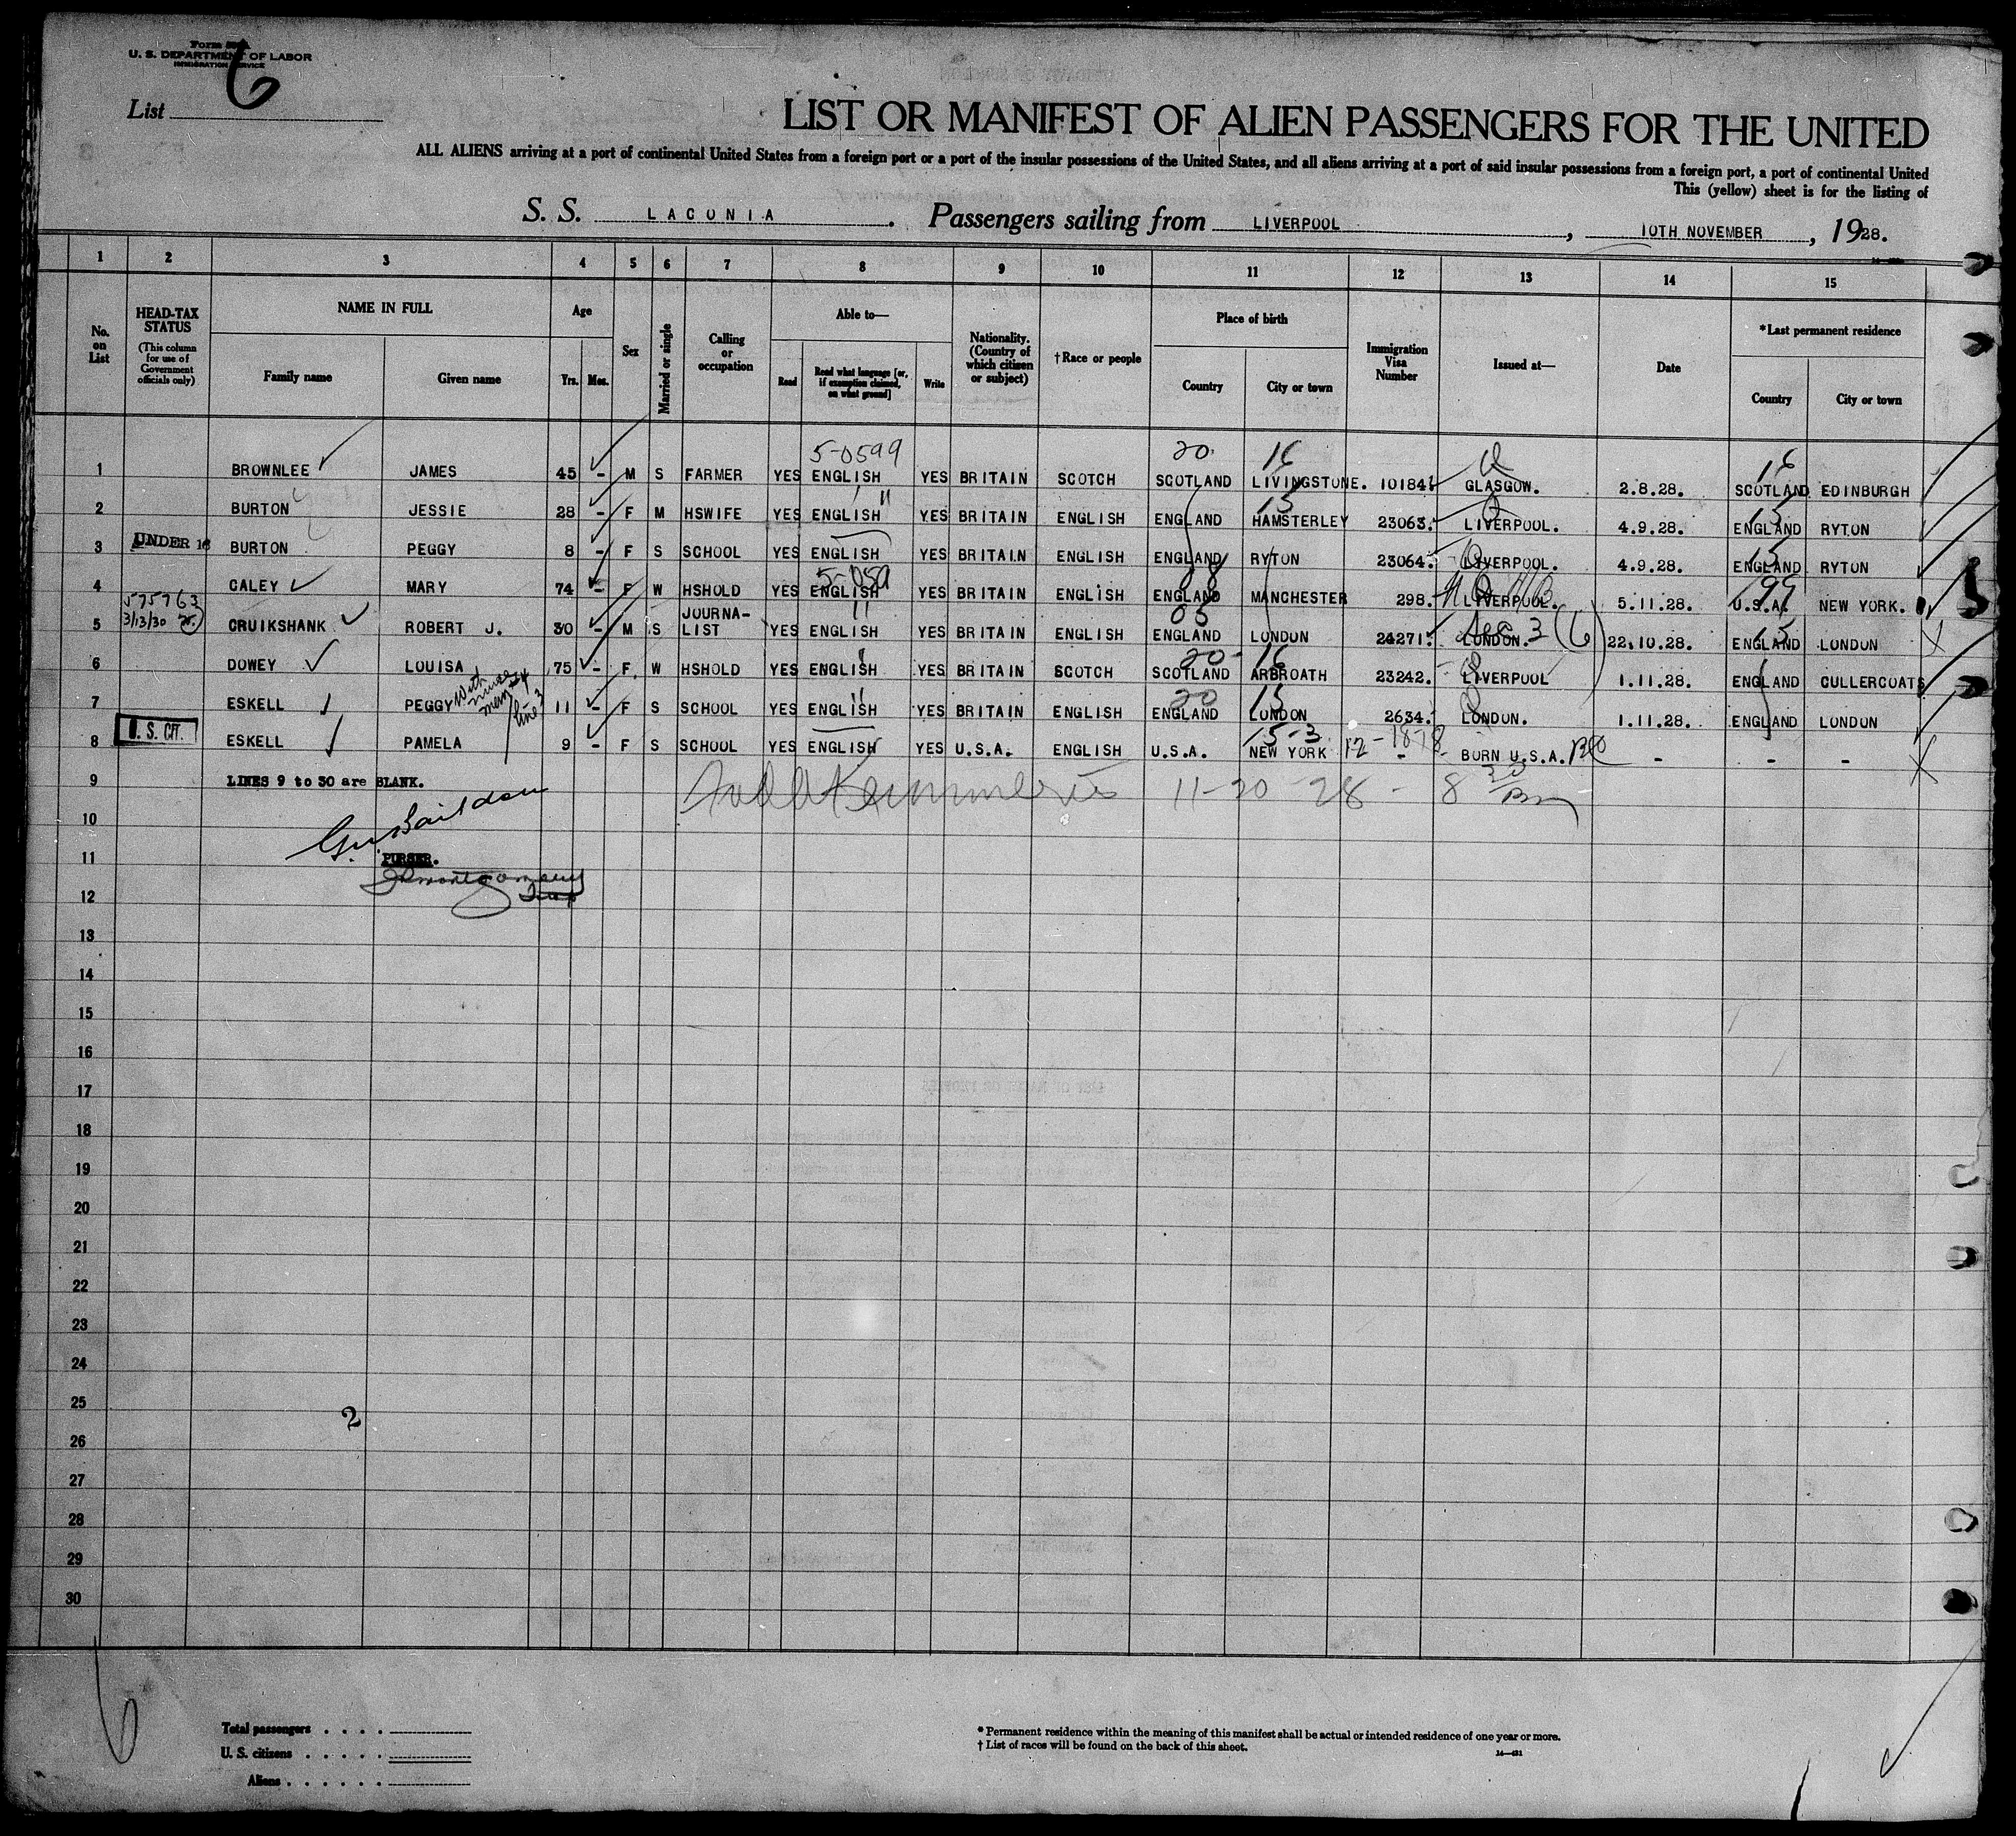 Form
U. S. DEPARTMENT OF LABOR
IMMIGRATION SERVICE
List 6
LIST OR MANIFEST OF ALIEN PASSENGERS FOR THE UNITED
ALL ALIENS arriving at a port of continental United States from a foreign port or a port of the insular possessions of the United States, and all aliens arriving at a port of said insular possessions from a foreign port, a port of continental United
This (yellow) sheet is for the listing of
S. S. LACONIA. Passengers sailing from LIVERPOOL, 10TH NOVEMBER, 1928.
1 2 3 4 5 6 7 8 9 10 11 12 13 14 15
No. on List
HEAD-TAX STATUS (This column for use of Government officials only)
NAME IN FULL
Family name
Given name
Age
Yrs. Mos.
Sex
Married or single
Calling or occupation
Able to—
Read
Read what language [or, if exemption claimed, on what ground]
Write
Nationality. (Country of which citizen or subject)
†Race or people
Place of birth
Country
City or town
Immigration Visa Number
Issued at—
Date
*Last permanent residence
Country
City or town
5-0599 20 16 16
1 BROWNLEE JAMES 45 - M S FARMER YES ENGLISH YES BRITAIN SCOTCH SCOTLAND LIVINGSTONE. 10184. GLASGOW. 2.8.28. SCOTLAND EDINBURGH
" 15 15
2 BURTON JESSIE 28 - F M HSWIFE YES ENGLISH YES BRITAIN ENGLISH ENGLAND HAMSTERLEY 23063. LIVERPOOL. 4.9.28. ENGLAND RYTON
15
3 UNDER 16 BURTON PEGGY 8 - F S SCHOOL YES ENGLISH YES BRITAIN ENGLISH ENGLAND RYTON 23064. LIVERPOOL. 4.9.28. ENGLAND RYTON
5-059 08 99
4 CALEY MARY 74 - F W HSHOLD YES ENGLISH YES BRITAIN ENGLISH ENGLAND MANCHESTER 298. LIVERPOOL. 5.11.28. U.S.A. NEW YORK.
575763
3/13/30
" 05 Sec 3 (6) 15
5 CRUIKSHANK ROBERT J. 30 - M S JOURNA-LIST YES ENGLISH YES BRITAIN ENGLISH ENGLAND LONDON 24271. LONDON. 22.10.28. ENGLAND LONDON
" 20 16
6 DOWEY LOUISA 75 - F. W HSHOLD YES ENGLISH YES BRITAIN SCOTCH SCOTLAND ARBROATH 23242. LIVERPOOL 1.11.28. ENGLAND CULLERCOATS
" 20 15
7 ESKELL PEGGY With line 11 - F S SCHOOL YES ENGLISH YES BRITAIN ENGLISH ENGLAND LONDON 2634. LONDON. 1.11.28. ENGLAND LONDON
U. S. CIT.
15-3 12-1878
8 ESKELL PAMELA 9 - F S SCHOOL YES ENGLISH YES U.S.A. ENGLISH U.S.A. NEW YORK - BORN U.S.A. - - -
9 LINES 9 to 30 are BLANK.
11-20-28 - 8 30
10
11 PURSER.
12
13
14
15
16
17
18
19
20
21
22
23
24
25
2
26
27
28
29
30
6
Total passengers
U. S. citizens
Aliens
* Permanent residence within the meaning of this manifest shall be actual or intended residence of one year or more.
† List of races will be found on the back of this sheet.